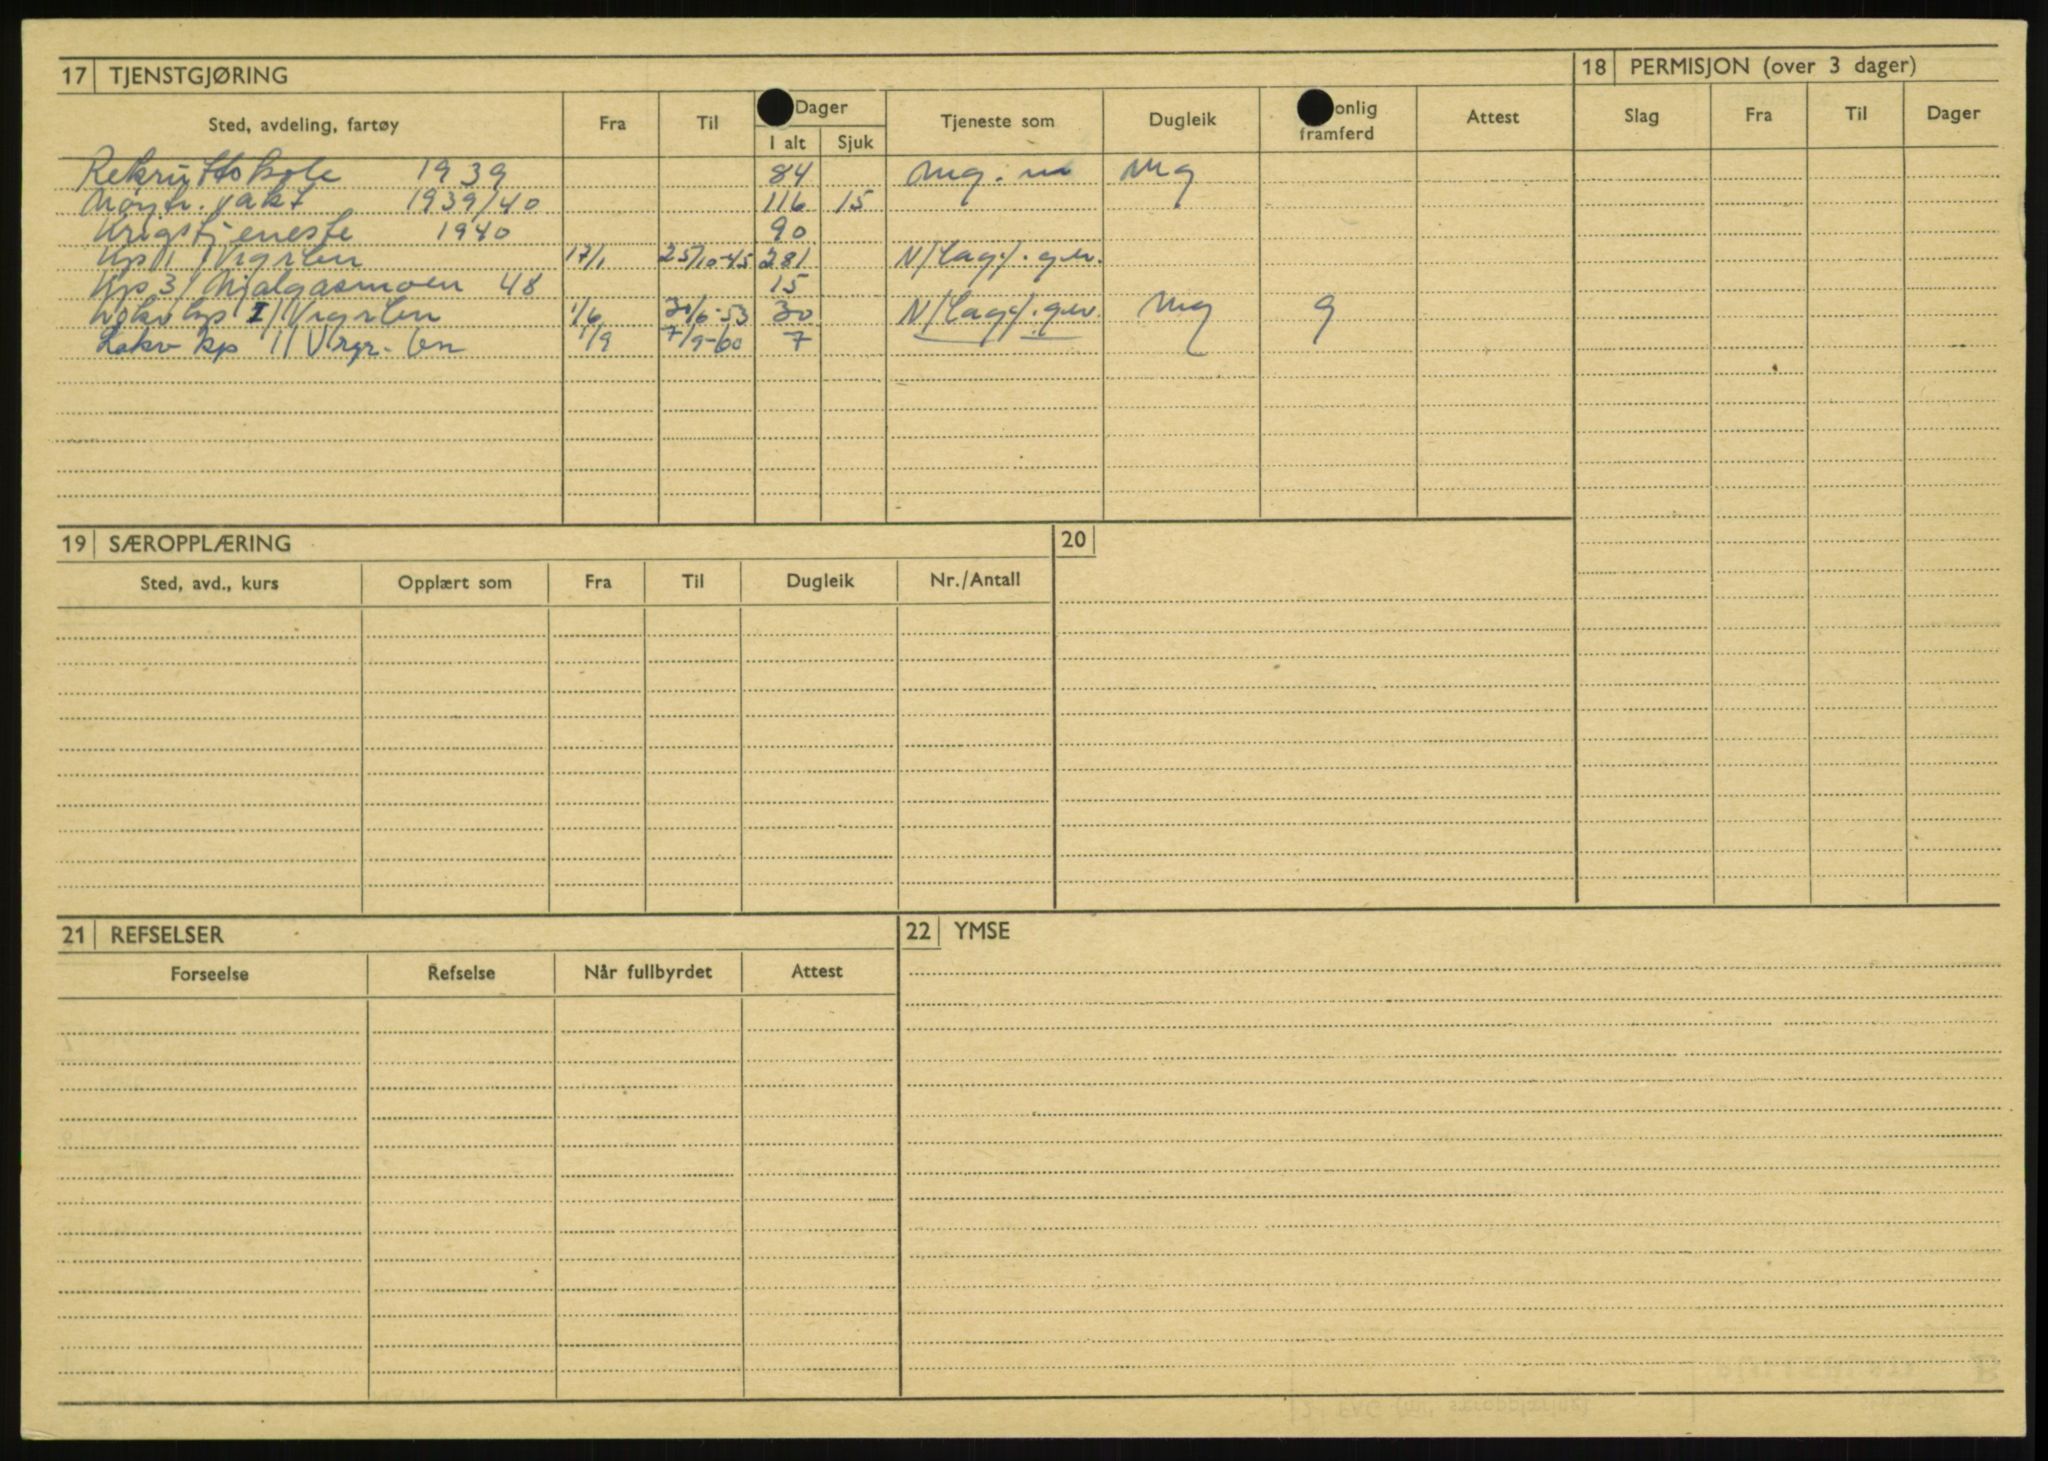 17 TJENSTGJØRING
Sted, avdeling, fartøy Fra Til Dager Tjeneste som Dugleik onlig framferd Attest
I alt Sjuk
Rekruttskole 1939 84 Mg. m Mg
Nøytr. vakt 1939/40 116 15
Krigstjeneste 1940 90
Kp 1 / Vrgrbn 17/1 25/10-45 281 N/lagf. gev.
Kp 3 / Mjølgasmoen 48 15
Lokv kp I / Vrgrbn 1/6 30/6-53 30 N/lagf. gev. Mg g
Lokv kp 1 / Vrgr. bn 1/9 7/9-60 7
18 PERMISJON (over 3 dager)
Slag Fra Til Dager
19 SÆROPPLÆRING
Sted, avd., kurs Opplært som Fra Til Dugleik Nr./Antall
20
21 REFSELSER
Forseelse Refselse Når fullbyrdet Attest
22 YMSE